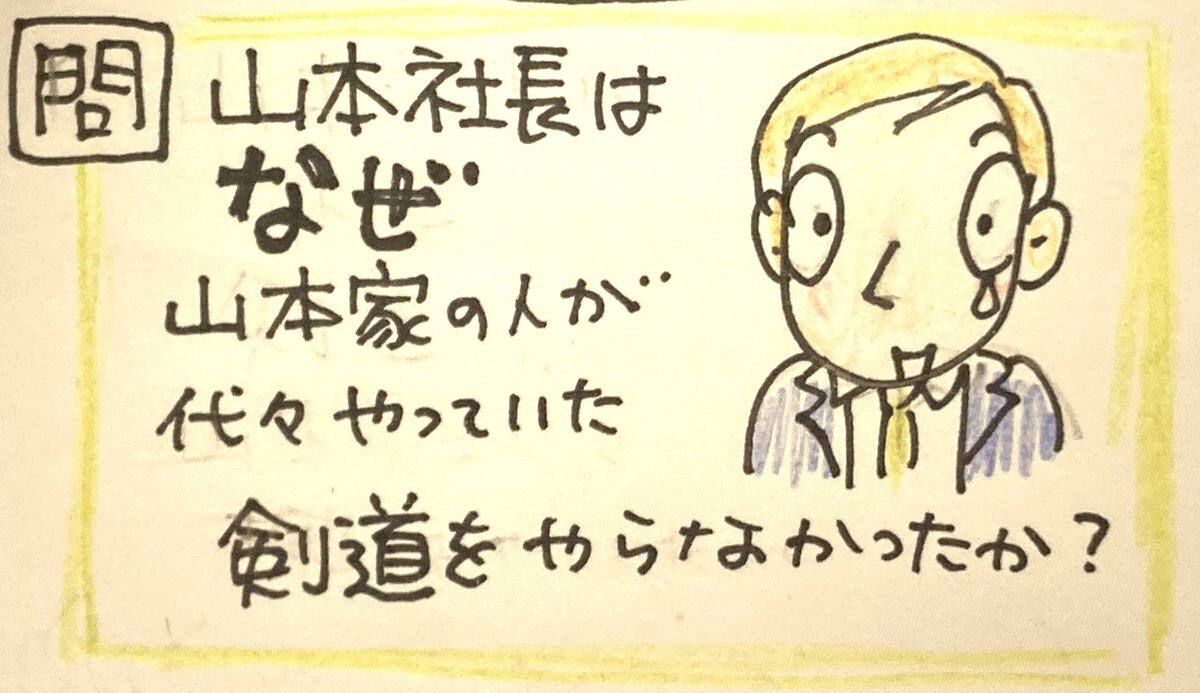 問
山本社長は
なぜ
山本家の人が
代々やっていた
剣道をやらなかったか?